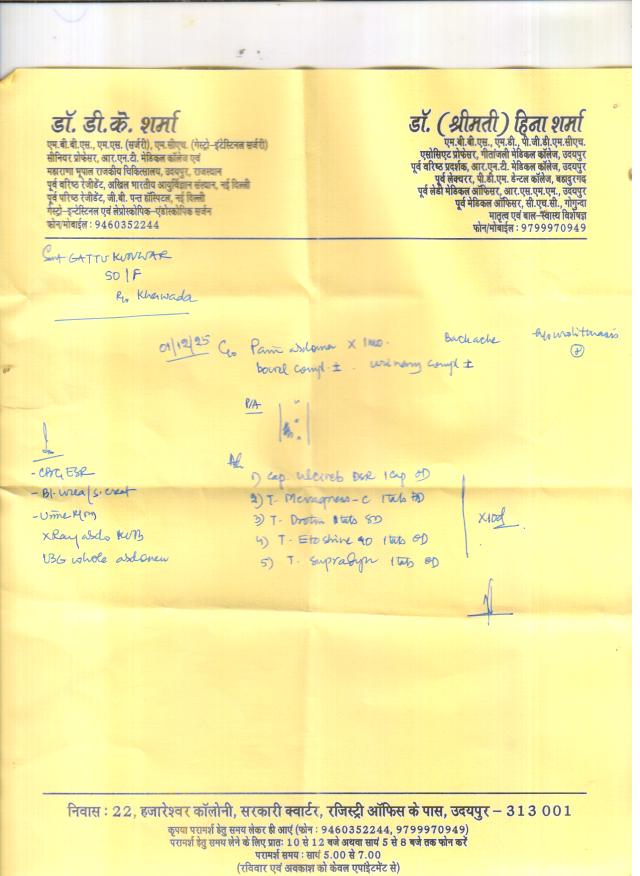 डॉ. डी.के. शर्मा
एम.बी.बी.एस., एम.एस. (सर्जरी), एम.सीएच. (गेस्ट्रो-इंटेस्टिनल सर्जरी)
सीनियर प्रोफेसर, आर.एन.टी. मेडिकल कॉलेज एवं
महाराणा भूपाल राजकीय चिकित्सालय, उदयपुर, राजस्थान
पूर्व वरिष्ठ रेजीडेंट, अखिल भारतीय आयुर्विज्ञान संस्थान, नई दिल्ली
पूर्व वरिष्ठ रेजीडेंट, जी.बी. पन्त हॉस्पिटल, नई दिल्ली
गेस्ट्रो-इन्टेस्टिनल एवं लेप्रोस्कोपिक-एंडोस्कोपिक सर्जन
फोन/मोबाईल : 9460352244
डॉ. (श्रीमती) हिना शर्मा
एम.बी.बी.एस., एम.डी., पी.जी.डी.एम.सीएच.
एसोसिएट प्रोफेसर, गीतांजली मेडिकल कॉलेज, उदयपुर
पूर्व वरिष्ठ प्रदर्शक, आर.एन.टी. मेडिकल कॉलेज, उदयपुर
पूर्व लेक्चरर, पी.डी.एम. डेन्टल कॉलेज, बहादुरगढ़
पूर्व लेडी मेडिकल ऑफिसर, आर.एस.एम.एम., उदयपुर
पूर्व मेडिकल ऑफिसर, सी.एच.सी., गोगुन्दा
मातृत्व एवं बाल-स्वास्थ्य विशेषज्ञ
फोन/मोबाईल : 9799970949
Smt GATTU KUNWAR
50/F
R/o Kherwada
01/12/25 C/o Pain abdomen x 1mo. Backache h/o urolithiasis
bowel compl ± urinary compl ± +
P/A
- CBC, ESR
- Bl. urea/s. creat
- Urine
X Ray abdo KUB
USG whole abdomen
1) Cap. DSR 1 Cap OD
2) T. 1 tab
3) T. Drotin 1 tab
4) T. Etoshine 90 1 tab OD
5) T. Supradyn 1 tab OD
x10d
निवास : 22, हजारेश्वर कॉलोनी, सरकारी क्वार्टर, रजिस्ट्री ऑफिस के पास, उदयपुर – 313 001
कृपया परामर्श हेतु समय लेकर ही आएं (फोन : 9460352244, 9799970949)
परामर्श हेतु समय लेने के लिए प्रातः 10 से 12 बजे अथवा सायं 5 से 8 बजे तक फोन करें
परामर्श समय : सायं 5.00 से 7.00
(रविवार एवं अवकाश को केवल एपाइंटमेंट से)